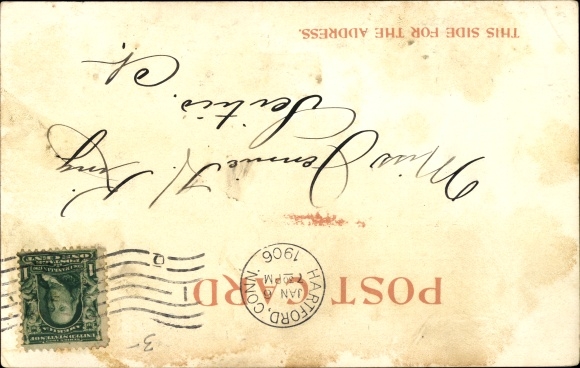 POST CARD
HARTFORD, CONN.
JAN 6
PM
1906
D
3-
UNITED STATES OF
AMERICA
1 1
POSTAGE
ONE CENT
Miss Jennie H King.
Scitico. Ct.
THIS SIDE FOR THE ADDRESS.